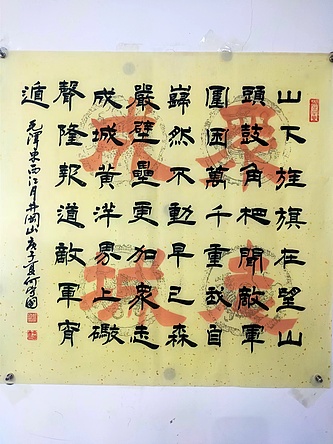 山下旌旗在望山
頭鼓角相聞敵軍
圍困萬千重我自
巋然不動早已森
嚴壁壘更加衆志
成城黃洋界上礮
聲隆報道敵軍宵
遁
毛澤東西江月井岡山庚子夏何